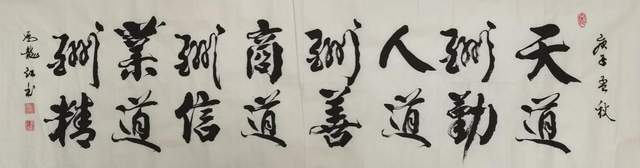 庚子孟秋
天道
酬勤
人道
酬善
商道
酬信
業道
酬精